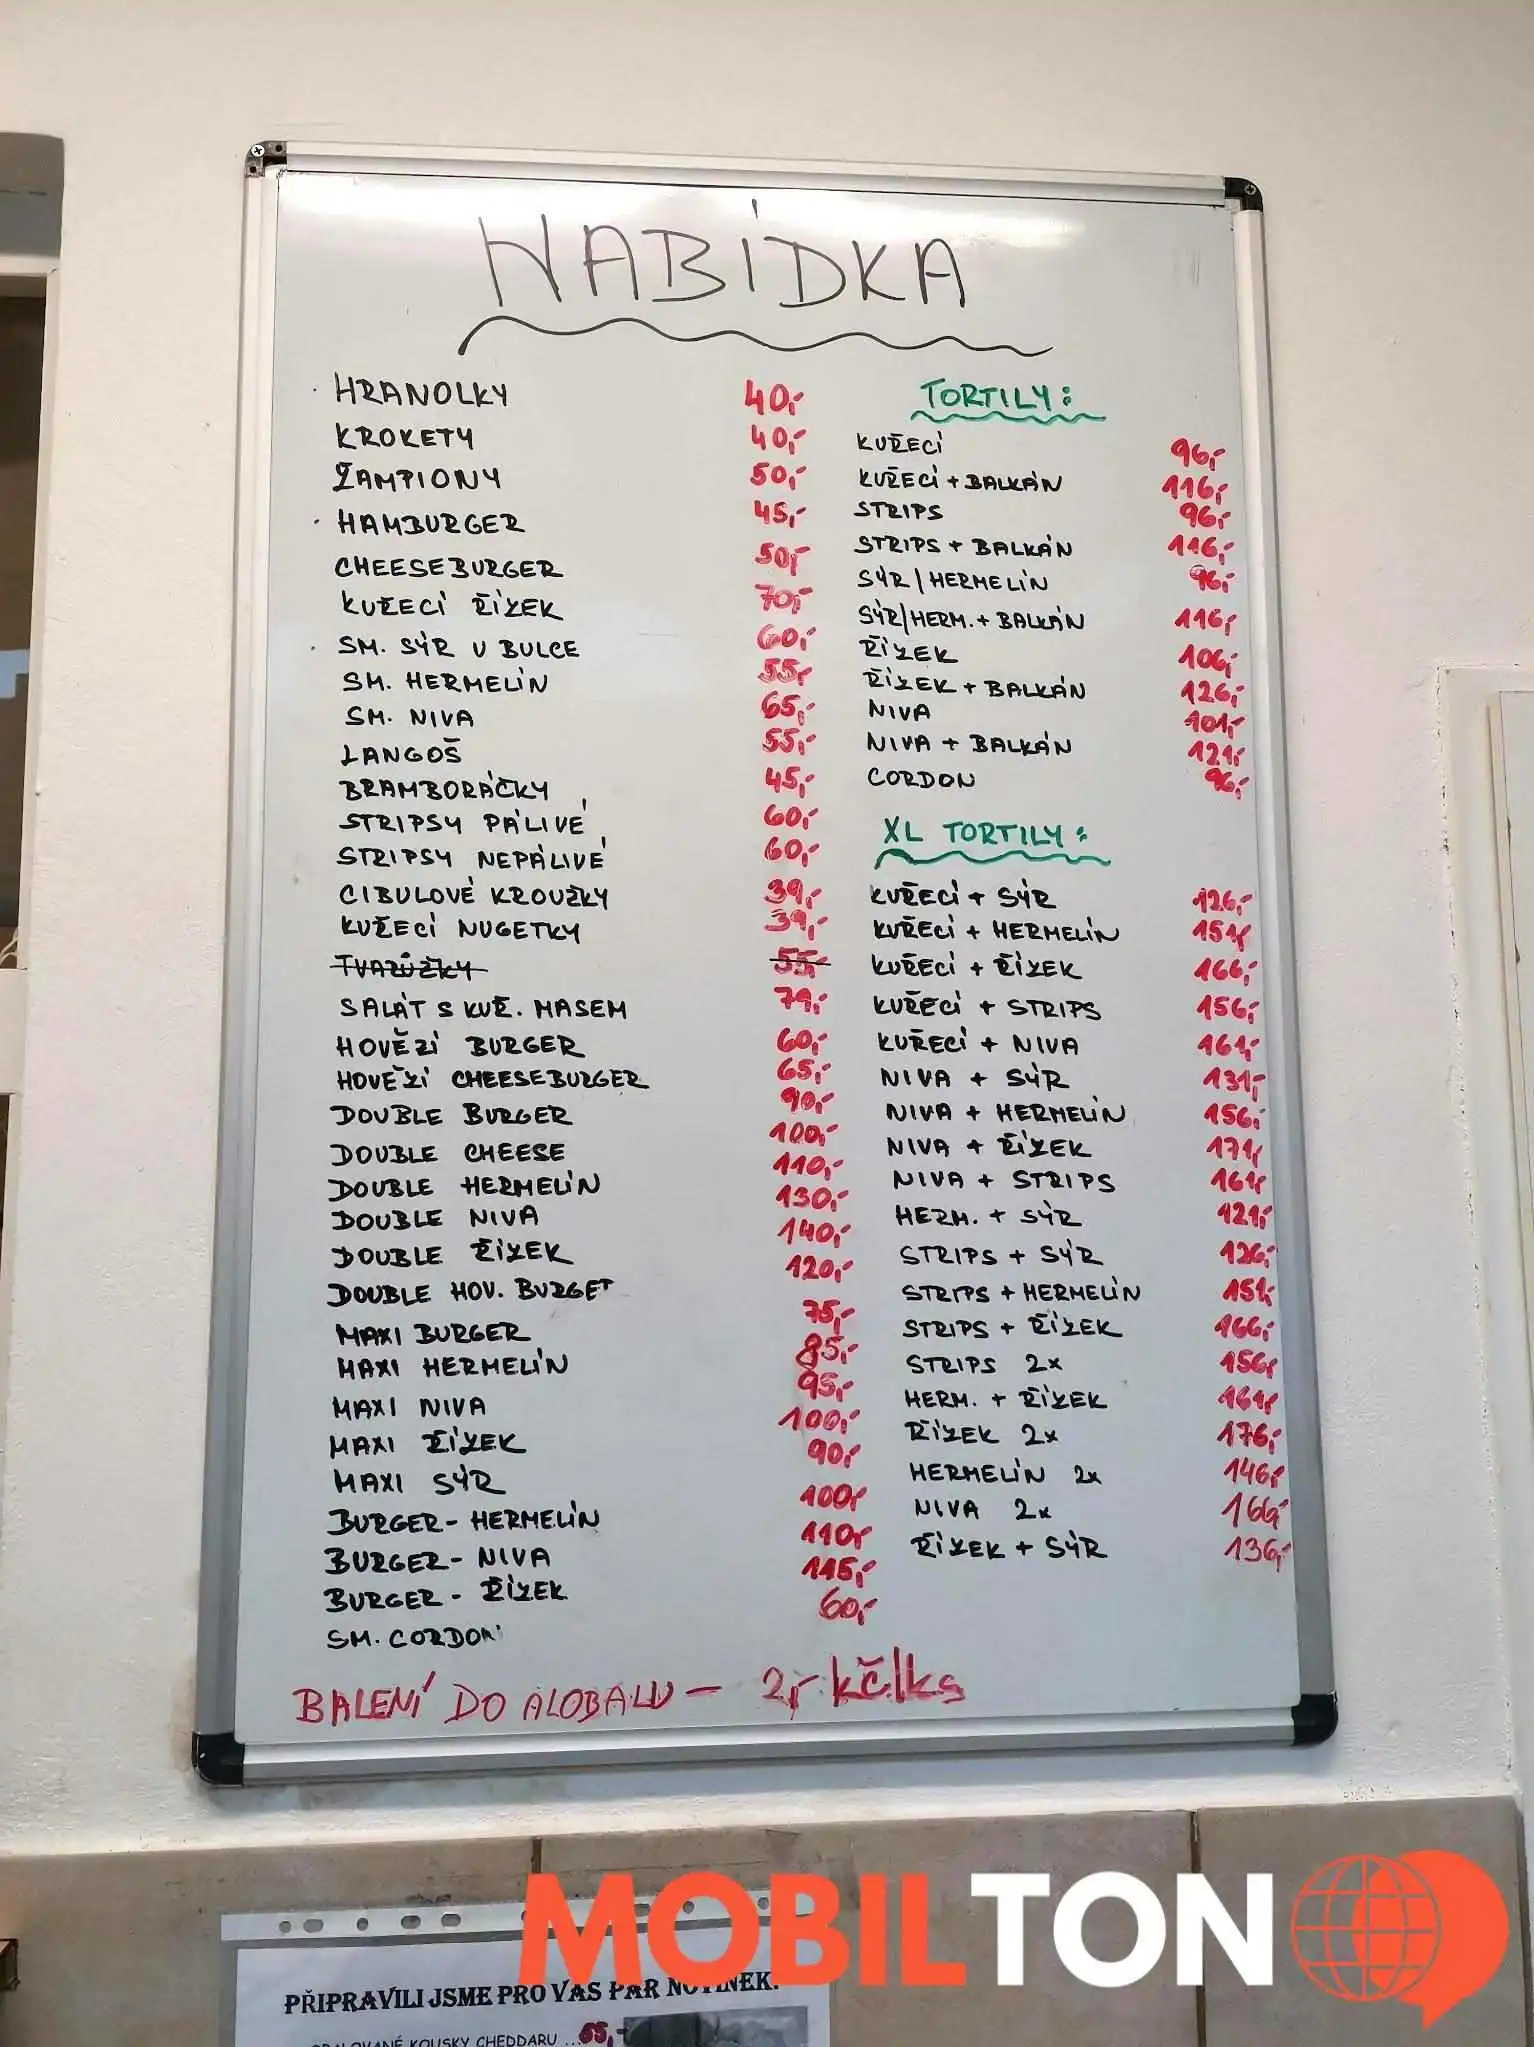 NABÍDKA
HRANOLKY 40,-
KROKETY 40,-
ŽAMPIONY 50,-
HAMBURGER 45,-
CHEESEBURGER 50,-
KUŘECÍ ŘÍZEK 70,-
SM. SÝR V BULCE 60,-
SM. HERMELÍN 55,-
SM. NIVA 65,-
LANGOŠ 55,-
BRAMBORÁČKY 45,-
STRIPSY PÁLIVÉ 60,-
STRIPSY NEPÁLIVÉ 60,-
CIBULOVÉ KROUŽKY 39,-
KUŘECÍ NUGETKY 39,-
TVARŮŽKY 55,-
SALÁT S KUŘ. MASEM 79,-
HOVĚZÍ BURGER 60,-
HOVĚZÍ CHEESEBURGER 65,-
DOUBLE BURGER 90,-
DOUBLE CHEESE 100,-
DOUBLE HERMELÍN 110,-
DOUBLE NIVA 130,-
DOUBLE ŘÍZEK 140,-
DOUBLE HOV. BURGER 120,-
MAXI BURGER 75,-
MAXI HERMELÍN 85,-
MAXI NIVA 95,-
MAXI ŘÍZEK 100,-
MAXI SÝR 90,-
BURGER- HERMELÍN 100,-
BURGER- NIVA 110,-
BURGER- ŘÍZEK 115,-
SM. CORDON 60,-
TORTILY:
KUŘECÍ 96,-
KUŘECÍ + BALKÁN 116,-
STRIPS 96,-
STRIPS + BALKÁN 116,-
SÝR/HERMELÍN 96,-
SÝR/HERM. + BALKÁN 116,-
ŘÍZEK 106,-
ŘÍZEK + BALKÁN 126,-
NIVA 101,-
NIVA + BALKÁN 121,-
CORDON 96,-
XL TORTILY:
KUŘECÍ + SÝR 126,-
KUŘECÍ + HERMELÍN 151,-
KUŘECÍ + ŘÍZEK 166,-
KUŘECÍ + STRIPS 156,-
KUŘECÍ + NIVA 161,-
NIVA + SÝR 131,-
NIVA + HERMELÍN 156,-
NIVA + ŘÍZEK 171,-
NIVA + STRIPS 161,-
HERM. + SÝR 121,-
STRIPS + SÝR 126,-
STRIPS + HERMELÍN 151,-
STRIPS + ŘÍZEK 166,-
STRIPS 2x 156,-
HERM. + ŘÍZEK 161,-
ŘÍZEK 2x 176,-
HERMELÍN 2x 146,-
NIVA 2x 166,-
ŘÍZEK + SÝR 136,-
BALENÍ DO ALOBALU - 2,- kč/ks
MOBILTON
PŘIPRAVILI JSME PRO VÁS PÁR NOVINEK.
KOUSKY CHEDDARU ...65,-